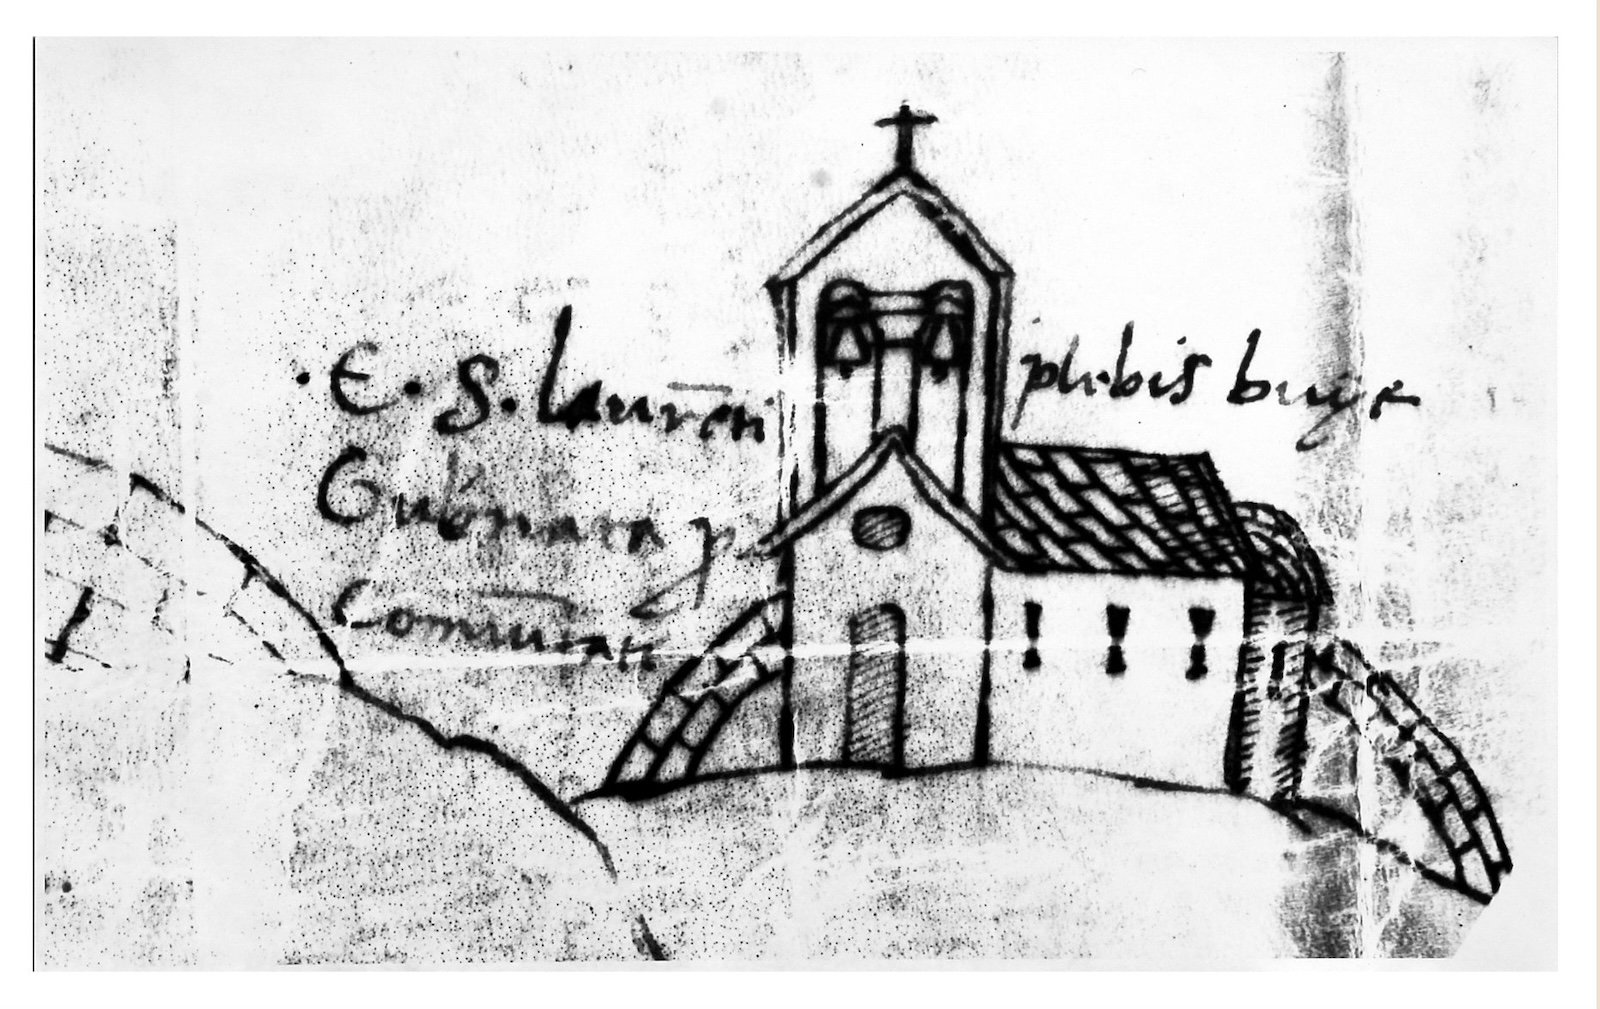 · E · S. laurēti plebis buge
Gubernata p
Comunitati